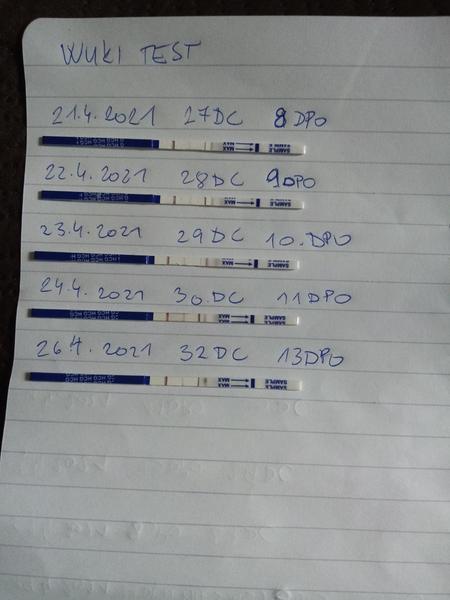 WUKI TEST
21.4.2021 27DC 8DPO
MAX SAMPLE
22.4.2021 28DC 9DPO
MAX SAMPLE
23.4.2021 29DC 10.DPO
HCG MAX SAMPLE
24.4.2021 30.DC 11DPO
HCG MAX SAMPLE
26.4.2021 32DC 13DPO
HCG HCG HCG MAX SAMPLE